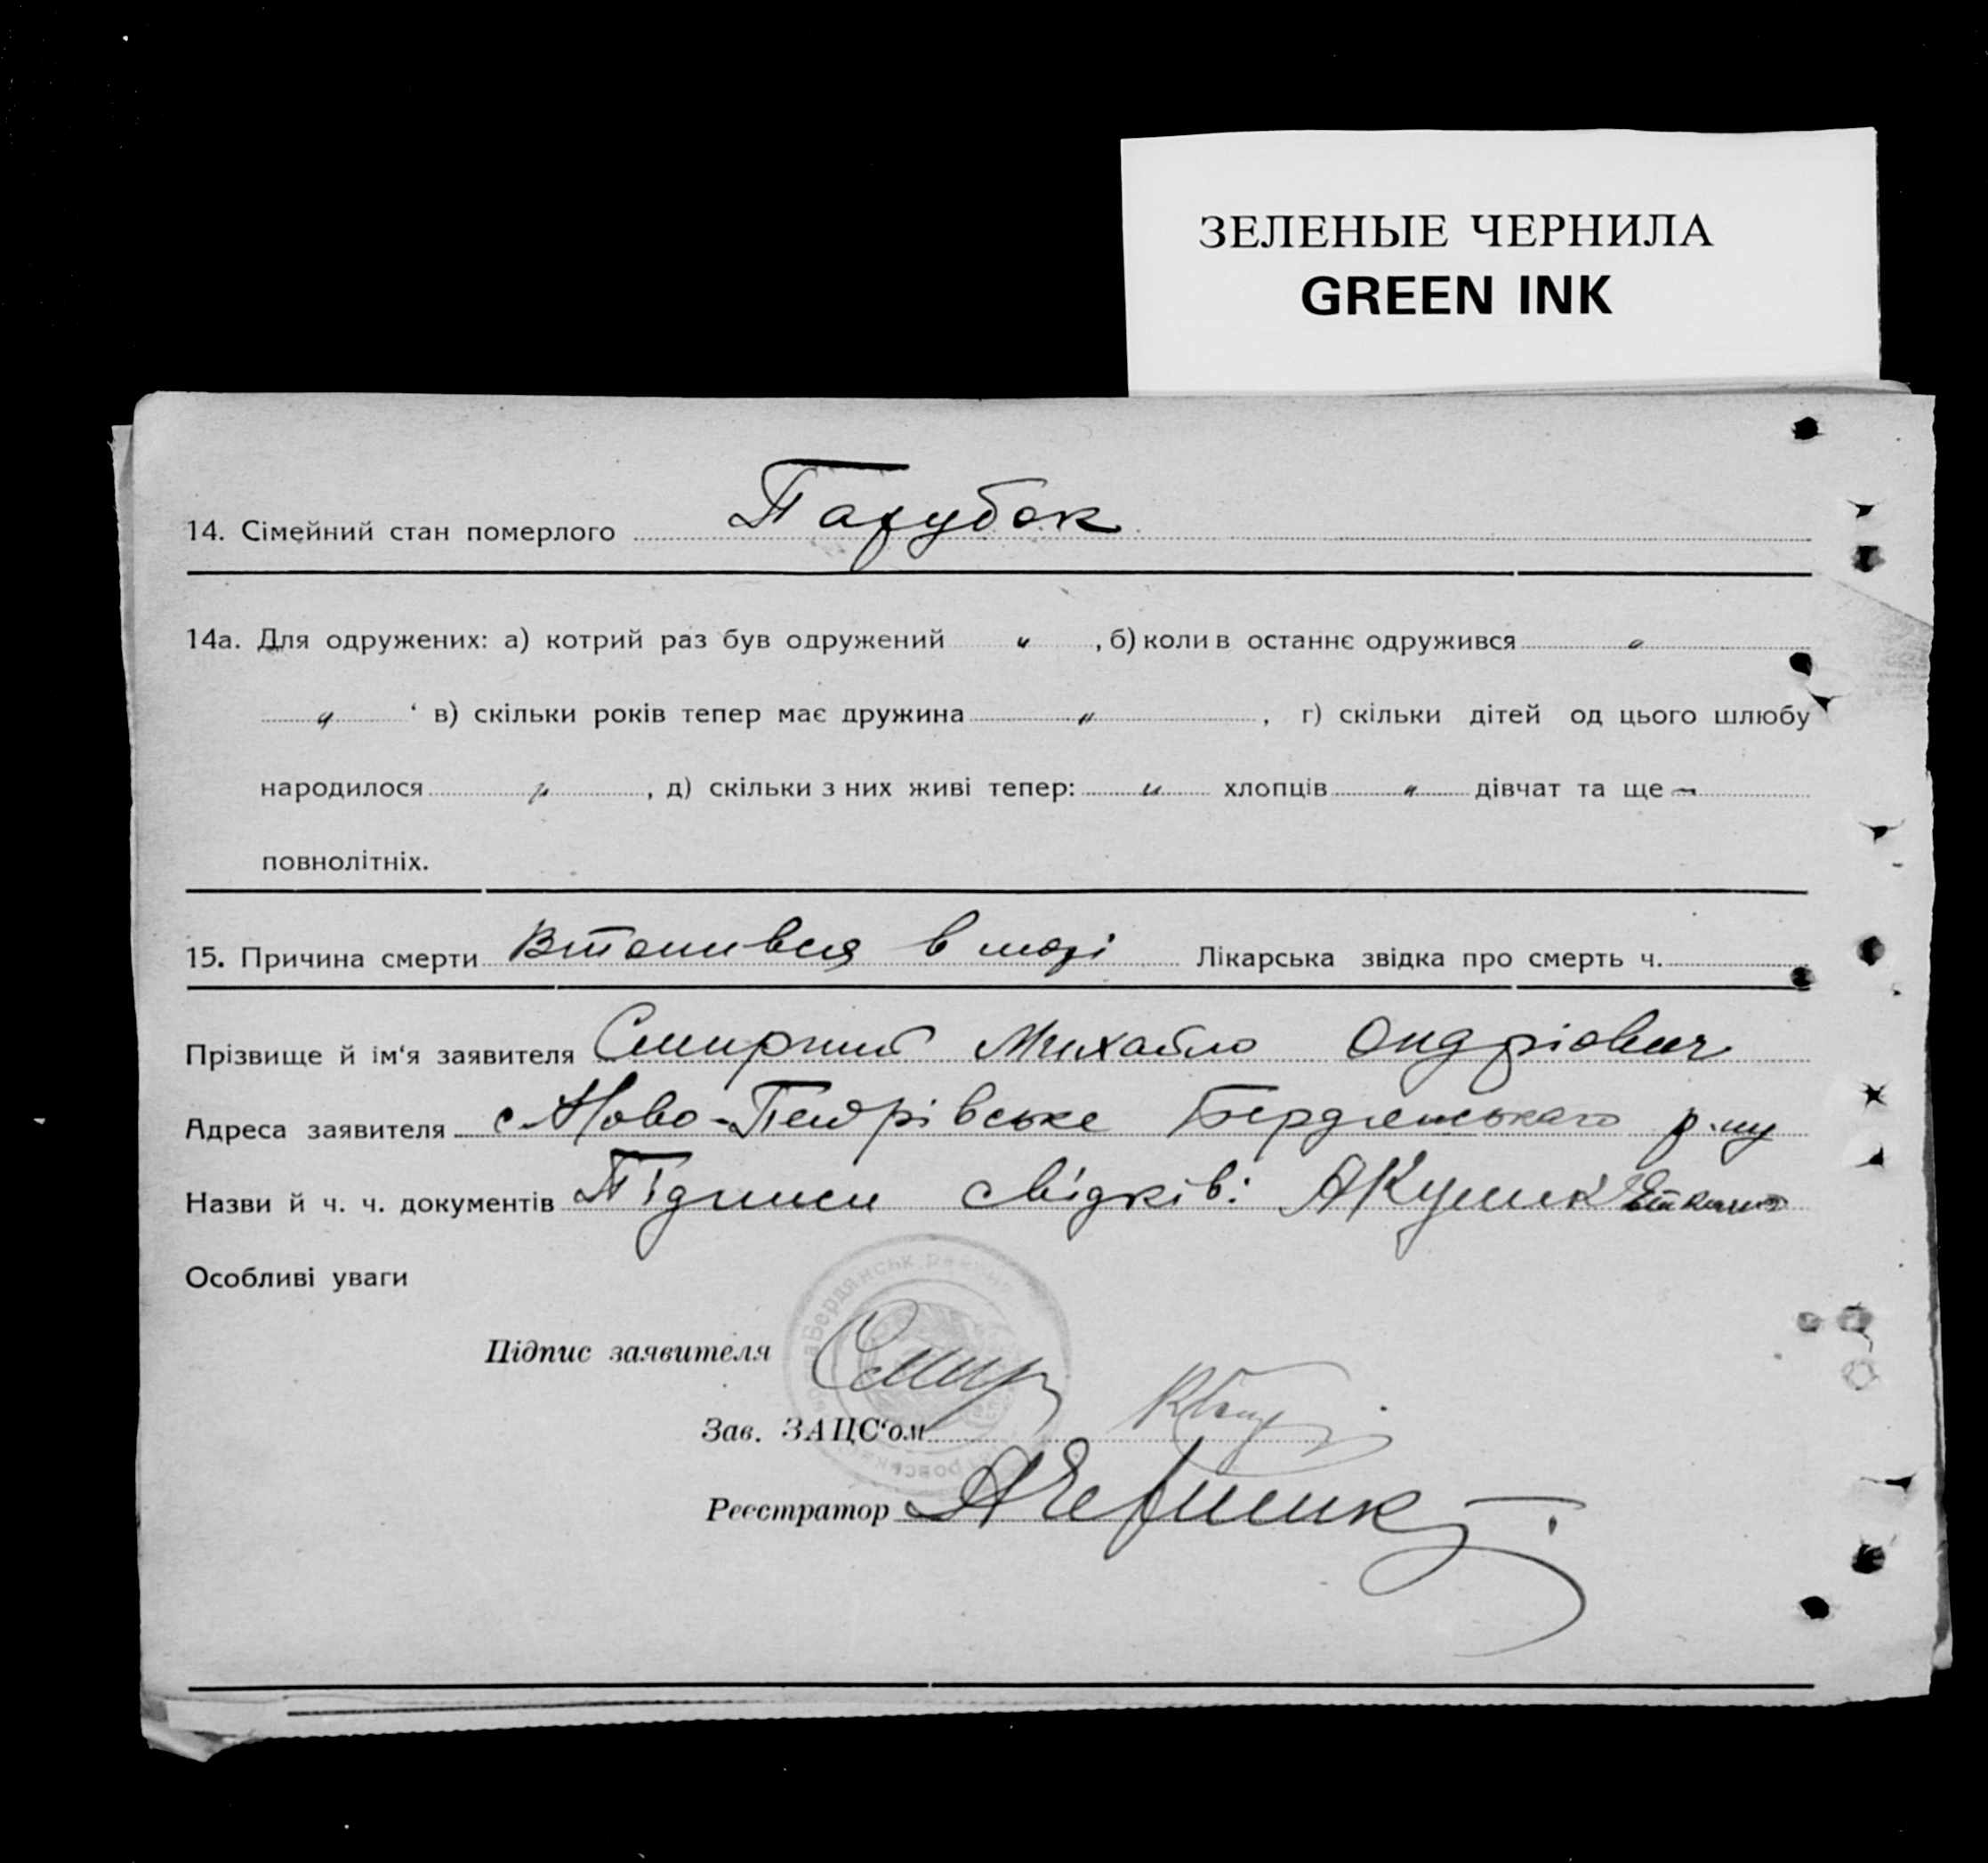 ЗЕЛЕНЫЕ ЧЕРНИЛА
GREEN INK
14. Сімейний стан померлого Парубок
14а. Для одружених: а) котрий раз був одружений " , б) коли в останнє одружився "
" ‘ в) скільки років тепер має дружина " , г) скільки дітей од цього шлюбу
народилося " , д) скільки з них живі тепер: " хлопців " дівчат та ще -
повнолітніх.
15. Причина смерти Втопився в морі Лікарська звідка про смерть ч.
Прізвище й ім‘я заявителя Смирний Михайло Ондріович
Адреса заявителя с Ново-Петрівське Бердянського р-ну
Назви й ч. ч. документів Підписи свідків: АКущик
Особливі уваги
Підпис заявителя Смир
Зав. ЗАЦС‘ом
Реєстратор